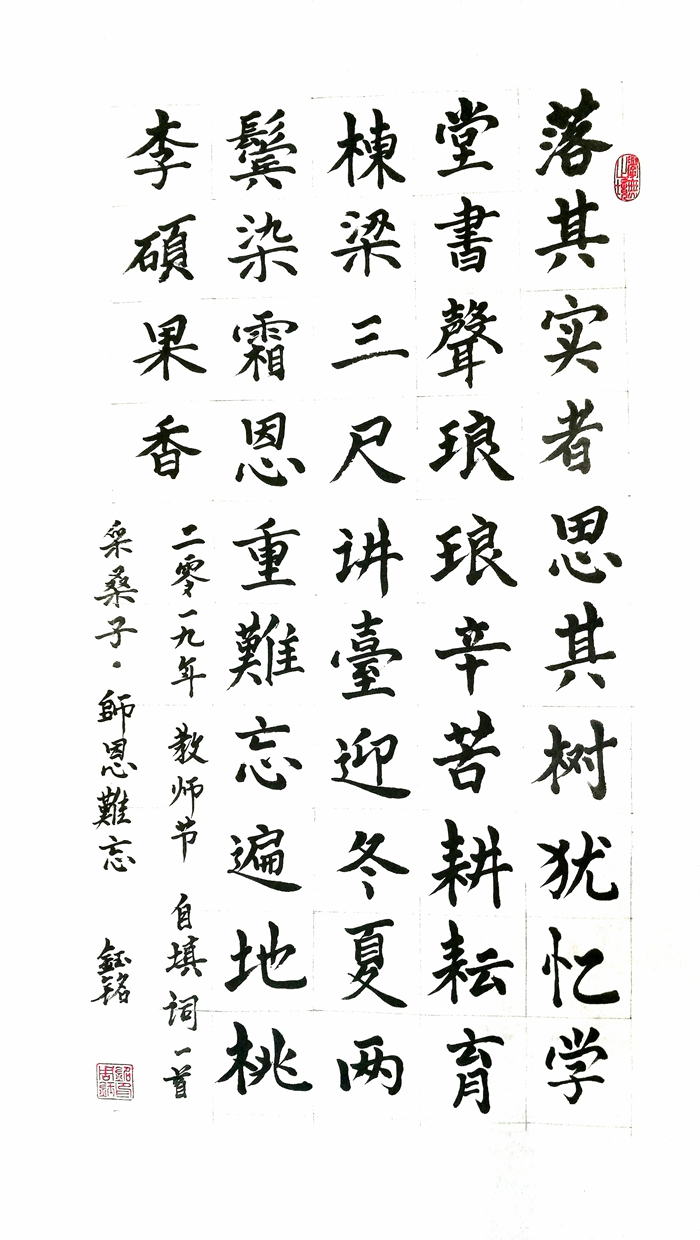 落其实者思其树犹忆学
堂書聲琅琅辛苦耕耘育
棟梁三尺讲臺迎冬夏两
鬓染霜恩重難忘遍地桃
李碩果香
二零一九年 教师节 自填词一首
采桑子·師恩難忘 鈺铭